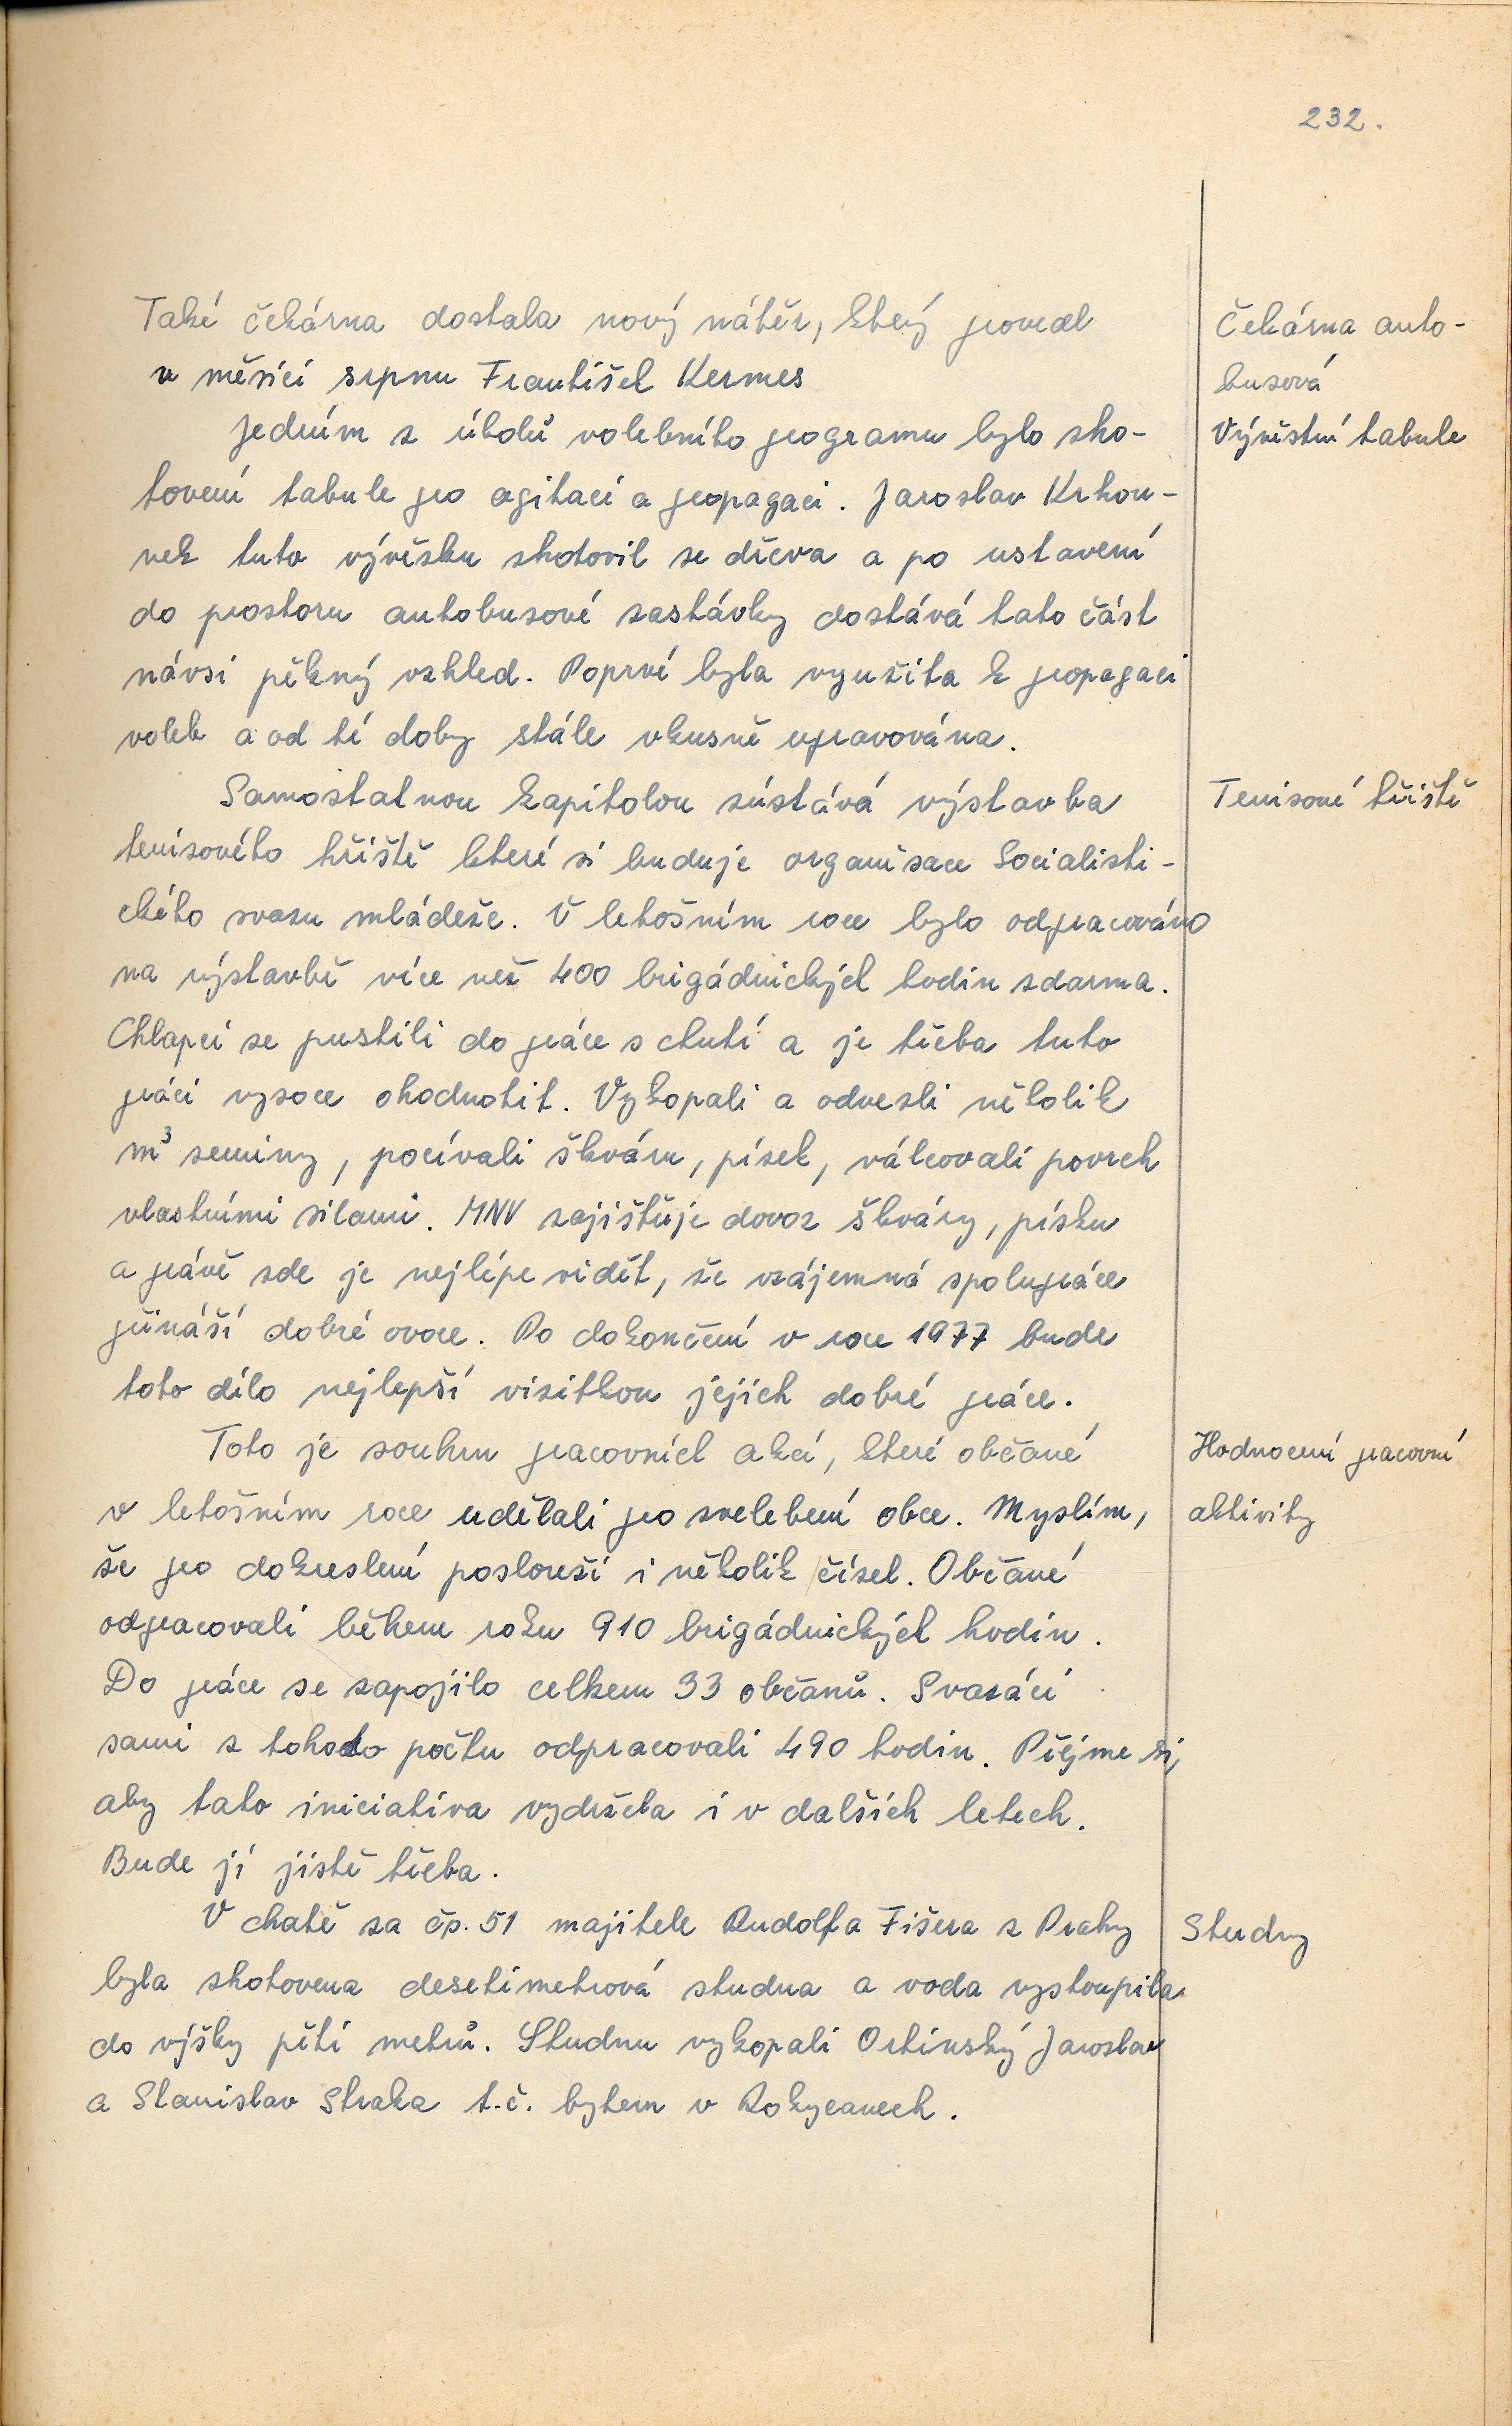 232.
Také čekárna dostala nový nátěr, který provedl
v měsíci srpnu František Kermes
Čekárna auto-
busová
Jedním z úkolů volebního programu bylo zho-
tovení tabule pro agitaci a propagaci. Jaroslav Krhou-
nek tuto vývěsku zhotovil ze dřeva a po ustavení
do prostoru autobusové zastávky dostává tato část
návsi pěkný vzhled. Poprvé byla využita k propagaci
voleb a od té doby stále vkusně upravována.
Vývěstní tabule
Samostatnou kapitolou zústává výstavba
tenisového hřiště které si buduje organisace Socialisti-
ckého svazu mládeže. V letošním roce bylo odpracováno
na výstavbě více než 400 brigádnických hodin zdarma.
Chlapci se pustili do práce s chutí a je třeba tuto
práci vysoce ohodnotit. Vykopali a odvezli několik
m³ zeminy, pocívali škváru, písek, válcovali povrch
vlastními silami. MNV zajišťuje dovoz škváry, písku
a právě zde je nejlépe vidět, že vzájemná spolupráce
přináší dobré ovoce. Po dokončení v roce 1977 bude
toto dílo nejlepší visitkou jejich dobré práce.
Tenisové hřiště
Toto je souhrn pracovních akcí, které občané
v letošním roce udělali pro zvelebení obce. Myslím,
že pro dokreslení poslouží i několik čísel. Občané
odpracovali během roku 910 brigádnických hodin.
Do práce se zapojilo celkem 33 občanů. Svazáci
sami z tohoto počtu odpracovali 490 hodin. Přejme si,
aby tato iniciativa vydržela i v dalších letech.
Bude jí jistě třeba.
Hodnocení pracovní
aktivity
V chatě za čp. 51 majitele Rudolfa Fišera z Prahy
byla zhotovena desetimetrová studna a voda vystoupila
do výšky pěti metrů. Studnu vykopali Ortinský Jaroslav
a Stanislav Straka t.č. bytem v Rokycanech.
Studny